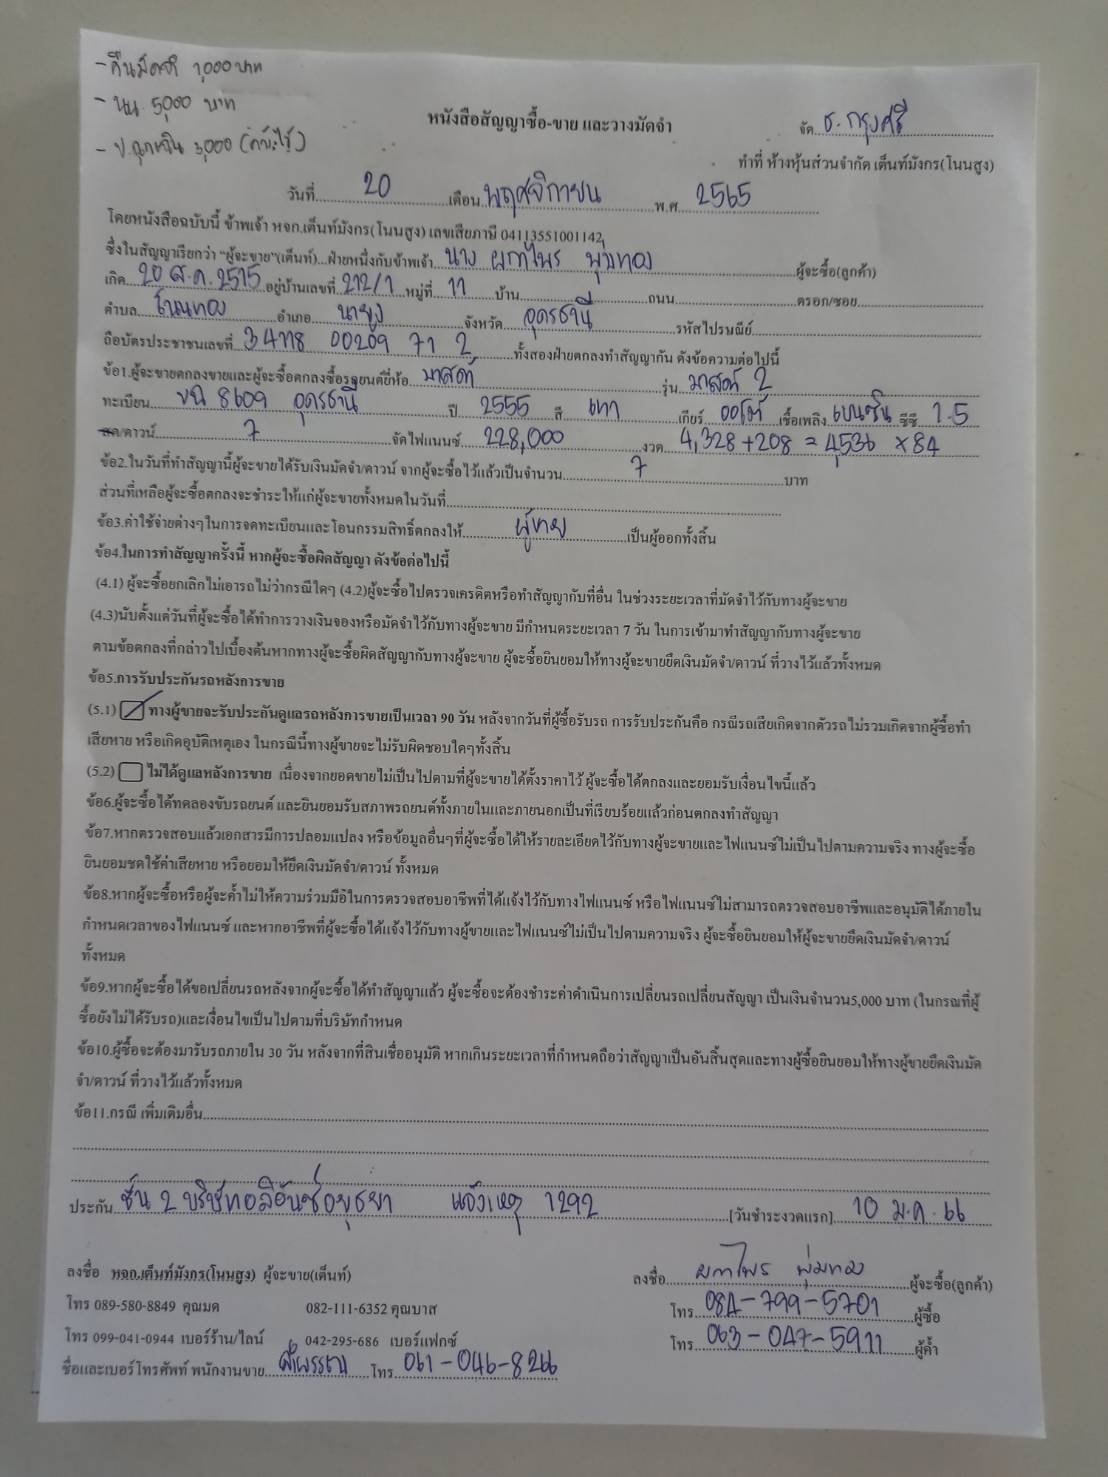 - คืนมัดจำ 1,000 บาท
- นน. 5000 บาท
- ป.ฉุกเฉิน 3,000
หนังสือสัญญาซื้อ-ขาย และวางมัดจำ
จัด ธ.กรุงศรี
ทำที่ ห้างหุ้นส่วนจำกัด เต็นท์มังกร(โนนสูง)
วันที่ 20 เดือน พฤศจิกายน พ.ศ. 2565
โดยหนังสือฉบับนี้ ข้าพเจ้า หจก.เต็นท์มังกร(โนนสูง) เลขเสียภาษี 04113551001142
ซึ่งในสัญญาเรียกว่า "ผู้จะขาย"(เต็นท์)...ฝ่ายหนึ่งกับข้าพเจ้า นาง ผกาไพร พุ่มทอง ผู้จะซื้อ(ลูกค้า)
เกิด 20 ส.ค. 2515 อยู่บ้านเลขที่ 212/1 หมู่ที่ 11 บ้าน ถนน ตรอก/ซอย
ตำบล โนนทอง อำเภอ นายูง จังหวัด อุดรธานี รหัสไปรษณีย์
ถือบัตรประชาชนเลขที่ 3 4118 00209 71 2 ทั้งสองฝ่ายตกลงทำสัญญากัน ดังข้อความต่อไปนี้
ข้อ1.ผู้จะขายตกลงขายและผู้จะซื้อตกลงซื้อรถยนต์ยี่ห้อ มาสด้า รุ่น มาสด้า 2
ทะเบียน ขฉ 8609 อุดรธานี ปี 2555 สี เทา เกียร์ ออโต้ เชื้อเพลิง เบนซิน ซีซี 1.5
สด/ดาวน์ 7 จัดไฟแนนซ์ 228,000 งวด 4,328+208 = 4,536 × 84
ข้อ2.ในวันที่ทำสัญญานี้ผู้จะขายได้รับเงินมัดจำ/ดาวน์ จากผู้จะซื้อไว้แล้วเป็นจำนวน 7 บาท
ส่วนที่เหลือผู้จะซื้อตกลงจะชำระให้แก่ผู้จะขายทั้งหมดในวันที่
ข้อ3.ค่าใช้จ่ายต่างๆในการจดทะเบียนและโอนกรรมสิทธิ์ตกลงให้ ผู้ขาย เป็นผู้ออกทั้งสิ้น
ข้อ4.ในการทำสัญญาครั้งนี้ หากผู้จะซื้อผิดสัญญา ดังข้อต่อไปนี้
(4.1) ผู้จะซื้อยกเลิกไม่เอารถไม่ว่ากรณีใดๆ (4.2)ผู้จะซื้อไปตรวจเครดิตหรือทำสัญญากับที่อื่น ในช่วงระยะเวลาที่มัดจำไว้กับทางผู้จะขาย
(4.3)นับตั้งแต่วันที่ผู้จะซื้อได้ทำการวางเงินจองหรือมัดจำไว้กับทางผู้จะขาย มีกำหนดระยะเวลา 7 วัน ในการเข้ามาทำสัญญากับทางผู้จะขาย
ตามข้อตกลงที่กล่าวไปเบื้องต้นหากทางผู้จะซื้อผิดสัญญากับทางผู้จะขาย ผู้จะซื้อยินยอมให้ทางผู้จะขายยึดเงินมัดจำ/ดาวน์ ที่วางไว้แล้วทั้งหมด
ข้อ5.การรับประกันรถหลังการขาย
(5.1) ทางผู้ขายจะรับประกันดูแลรถหลังการขายเป็นเวลา 90 วัน หลังจากวันที่ผู้ซื้อรับรถ การรับประกันคือ กรณีรถเสียเกิดจากตัวรถ ไม่รวมเกิดจากผู้ซื้อทำ
เสียหาย หรือเกิดอุบัติเหตุเอง ในกรณีนี้ทางผู้ขายจะไม่รับผิดชอบใดๆทั้งสิ้น
(5.2) ไม่ได้ดูแลหลังการขาย เนื่องจากยอดขายไม่เป็นไปตามที่ผู้จะขายได้ตั้งราคาไว้ ผู้จะซื้อได้ตกลงและยอมรับเงื่อนไขนี้แล้ว
ข้อ6.ผู้จะซื้อได้ทดลองขับรถยนต์ และยินยอมรับสภาพรถยนต์ทั้งภายในและภายนอกเป็นที่เรียบร้อยแล้วก่อนตกลงทำสัญญา
ข้อ7.หากตรวจสอบแล้วเอกสารมีการปลอมแปลง หรือข้อมูลอื่นๆที่ผู้จะซื้อได้ให้รายละเอียดไว้กับทางผู้จะขายและไฟแนนซ์ไม่เป็นไปตามความจริง ทางผู้จะซื้อ
ยินยอมชดใช้ค่าเสียหาย หรือยอมให้ยึดเงินมัดจำ/ดาวน์ ทั้งหมด
ข้อ8.หากผู้จะซื้อหรือผู้จะค้ำไม่ให้ความร่วมมือในการตรวจสอบอาชีพที่ได้แจ้งไว้กับทางไฟแนนซ์ หรือไฟแนนซ์ไม่สามารถตรวจสอบอาชีพและอนุมัติได้ภายใน
กำหนดเวลาของไฟแนนซ์ และหากอาชีพที่ผู้จะซื้อได้แจ้งไว้กับทางผู้ขายและไฟแนนซ์ไม่เป็นไปตามความจริง ผู้จะซื้อยินยอมให้ผู้จะขายยึดเงินมัดจำ/ดาวน์
ทั้งหมด
ข้อ9.หากผู้จะซื้อได้ขอเปลี่ยนรถหลังจากผู้จะซื้อได้ทำสัญญาแล้ว ผู้จะซื้อจะต้องชำระค่าดำเนินการเปลี่ยนรถเปลี่ยนสัญญา เป็นเงินจำนวน5,000 บาท (ในกรณีที่ผู้
ซื้อยังไม่ได้รับรถ)และเงื่อนไขเป็นไปตามที่บริษัทกำหนด
ข้อ10.ผู้ซื้อจะต้องมารับรถภายใน 30 วัน หลังจากที่สินเชื่ออนุมัติ หากเกินระยะเวลาที่กำหนดถือว่าสัญญาเป็นอันสิ้นสุดและทางผู้ซื้อยินยอมให้ทางผู้ขายยึดเงินมัด
จำ/ดาวน์ ที่วางไว้แล้วทั้งหมด
ข้อ11.กรณี เพิ่มเติมอื่น
ประกัน ชั้น 2 บริษัทอลิอันซ์อยุธยา แจ้งเหตุ 1292 [วันชำระงวดแรก] 10 ม.ค. 66
ลงชื่อ หจก.เต็นท์มังกร(โนนสูง) ผู้จะขาย(เต็นท์) ลงชื่อ ผกาไพร พุ่มทอง ผู้จะซื้อ(ลูกค้า)
โทร 089-580-8849 คุณมด 082-111-6352 คุณบาส โทร 084-799-5701 ผู้ซื้อ
โทร 099-041-0944 เบอร์ร้าน/ไลน์ 042-295-686 เบอร์แฟกซ์ โทร 063-047-5911 ผู้ค้ำ
ชื่อและเบอร์โทรศัพท์ พนักงานขาย โทร 061-046-8266